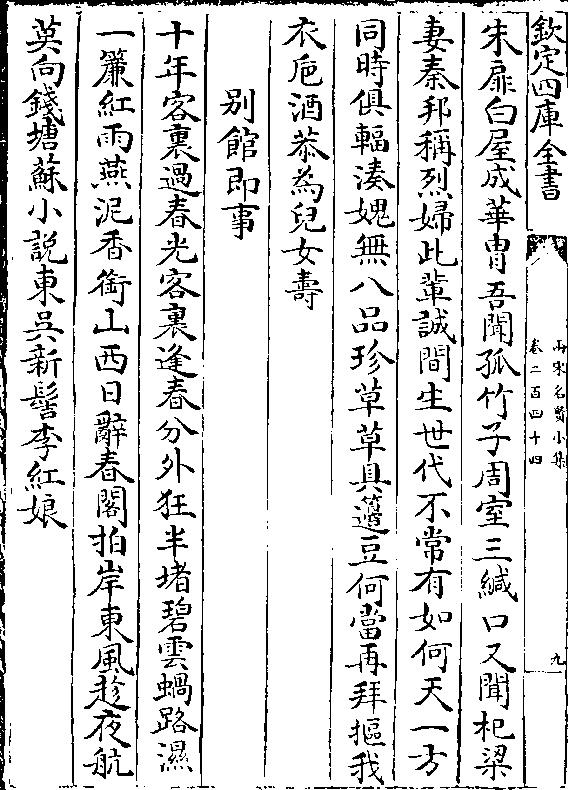 欽定四庫全書
兩宋名賢小集
卷二百四十四
九
朱扉白屋成華冑吾聞孤竹子周室三緘口又聞杞梁
妻秦邦稱烈婦此輩誠間生世代不常有如何天一方
同時俱輻湊媿無八品珍草草具籩豆何當再拜摳我
衣巵酒恭為兒女壽
别館即事
十年客裏過春光客裏逢春分外狂半堵碧雲蝸路濕
一簾紅雨燕泥香銜山西日辭春閣拍岸東風趁夜航
莫向錢塘蘇小説東吳新髻李紅娘